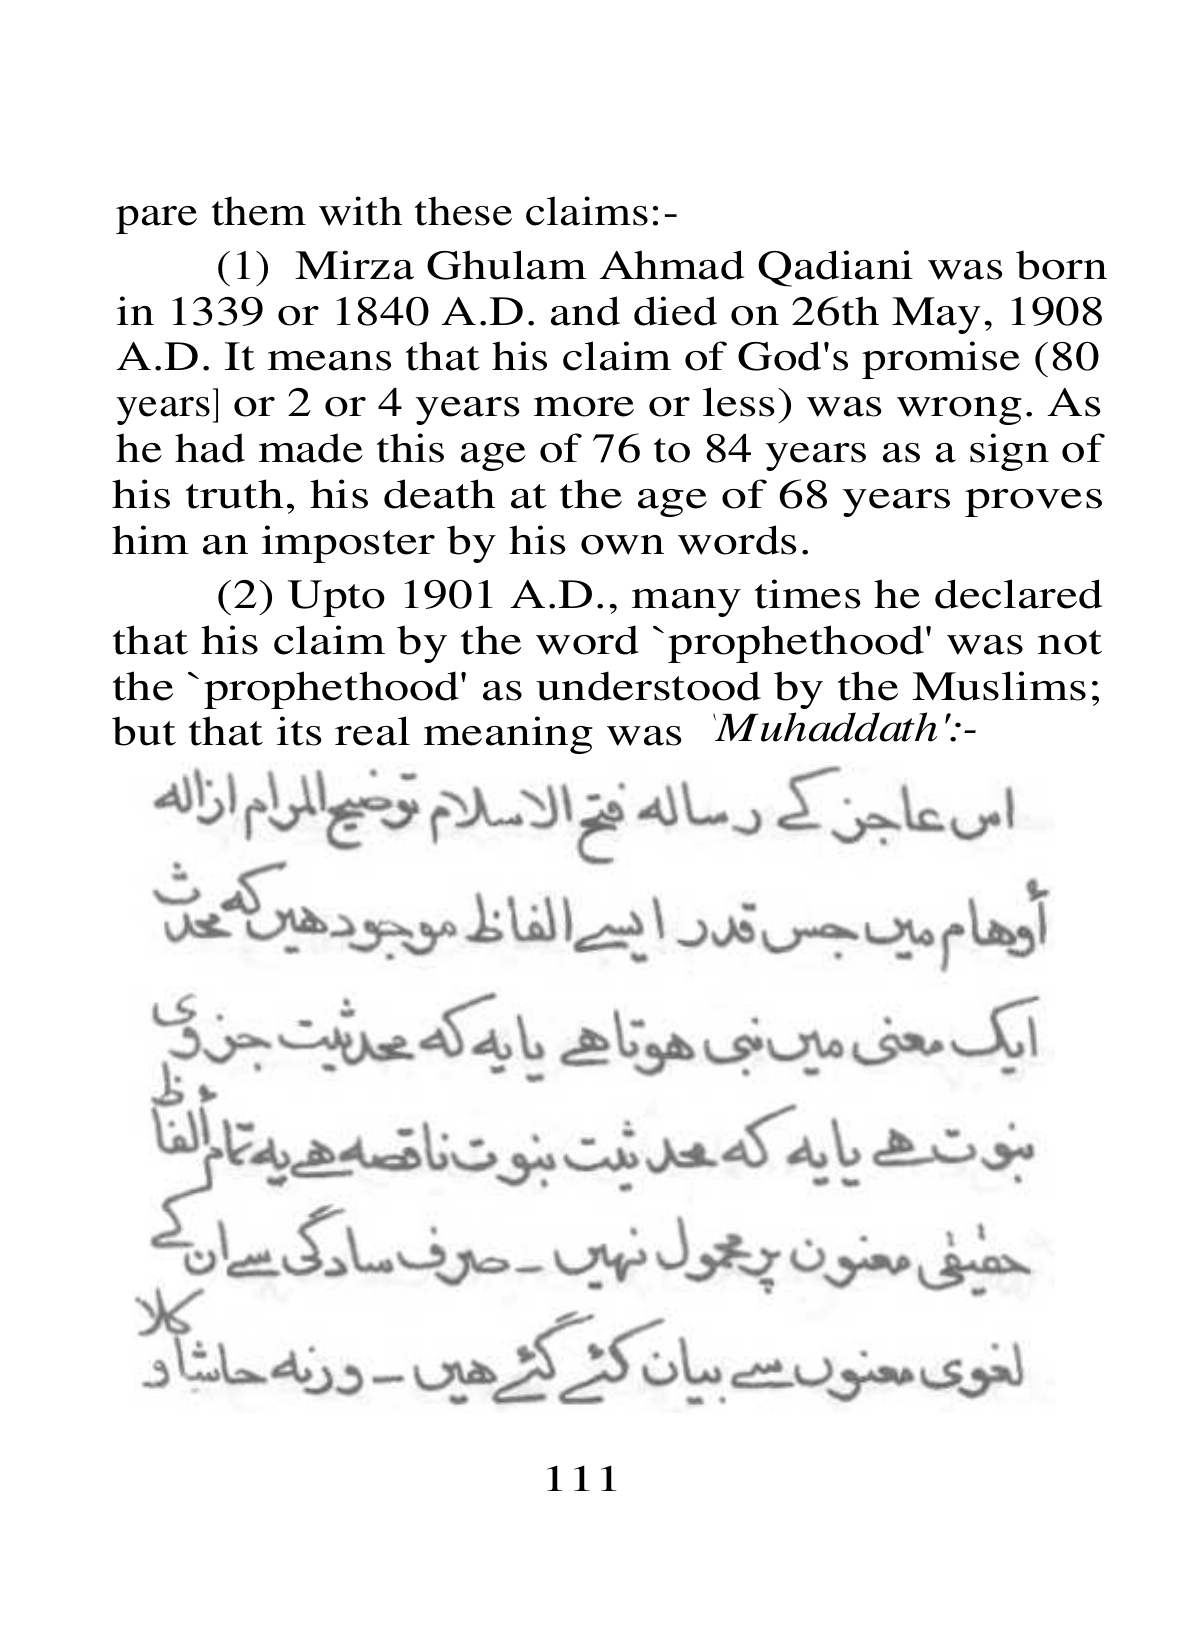 pare them with these claims:-
(1) Mirza Ghulam Ahmad Qadiani was born
in 1339 or 1840 A.D. and died on 26th May, 1908
A.D. It means that his claim of God's promise (80
years] or 2 or 4 years more or less) was wrong. As
he had made this age of 76 to 84 years as a sign of
his truth, his death at the age of 68 years proves
him an imposter by his own words.
(2) Upto 1901 A.D., many times he declared
that his claim by the word `prophethood' was not
the `prophethood' as understood by the Muslims;
but that its real meaning was 'Muhaddath':-
اس عاجز کے رسالہ فتح الاسلام توضیح المرام ازالہ
أوھام میں جس قدر ایسے الفاظ موجود ھیں کہ محدث
ایک معنی میں نبی ھوتا ھے یا یہ کہ محدثیت جزوی
نبوت ھے یا یہ کہ محدثیت نبوت ناقصہ ھے یہ تمام ألفاظ
حقیقی معنون پر محمول نہیں ـ صرف سادگی سے ان کے
لغوی معنوں سے بیان کئے گئے ھیں ـ ورنہ حاشا و کلا
111